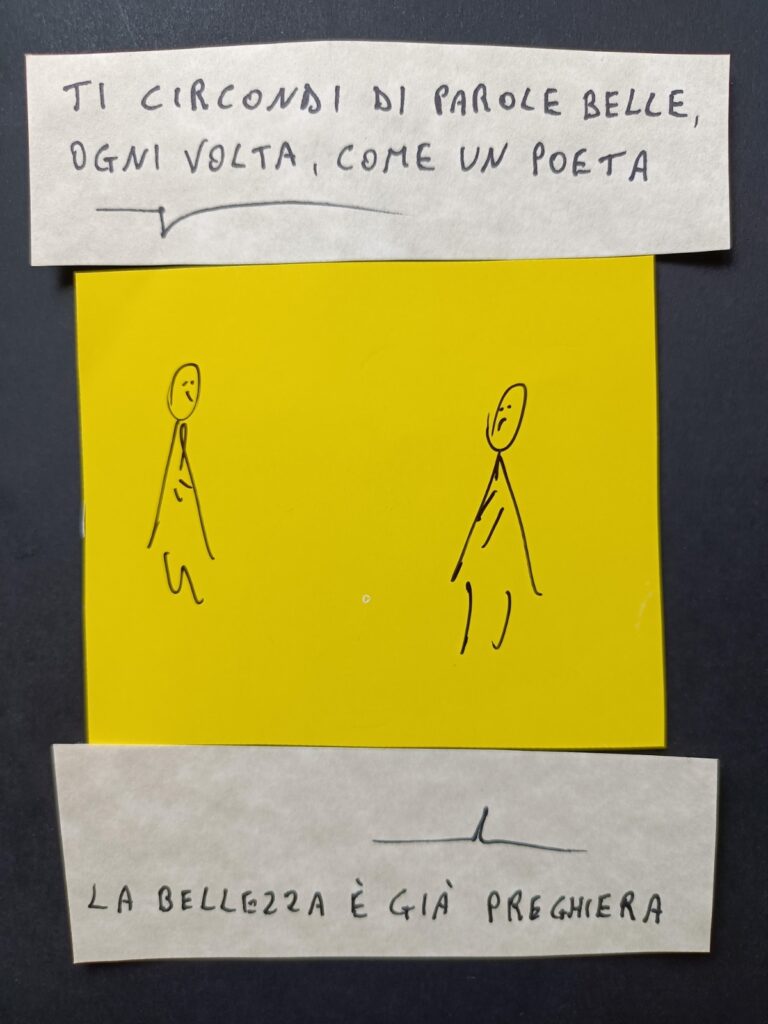 TI CIRCONDI DI PAROLE BELLE,
OGNI VOLTA, COME UN POETA
LA BELLEZZA È GIÀ PREGHIERA